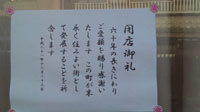 閉店御礼
六十年の長きにわたり
ご愛顧を賜り感謝い
たします この町が末
永く住みよい街とし
て発展することを祈
念します